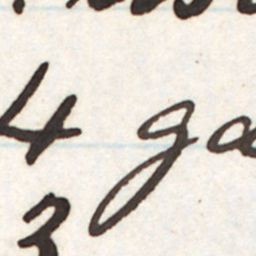 4 ga
3